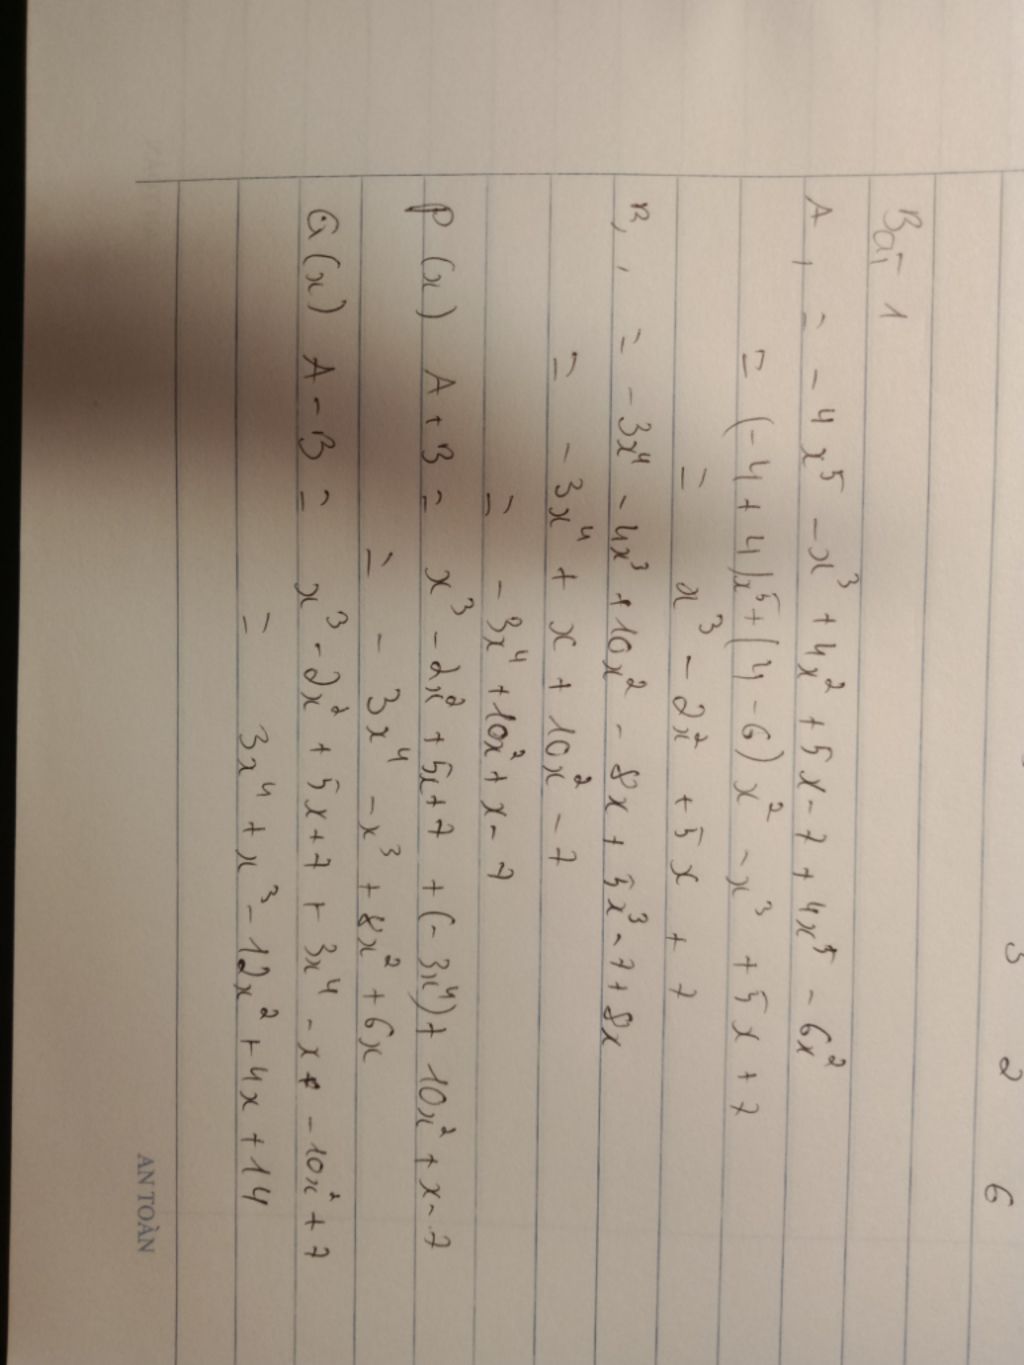 3 2 6
Bài 1
A, = -4x⁵ - x³ + 4x² + 5x - 7 + 4x⁵ - 6x²
= (-4 + 4)x⁵ + (4 - 6)x² - x³ + 5x + 7
= x³ - 2x² + 5x + 7
B, , = -3x⁴ - 4x³ + 10x² - 8x + 5x³ - 7 + 8x
= -3x⁴ + x + 10x² - 7
= -3x⁴ + 10x² + x - 7
P(x) A + B = x³ - 2x² + 5x + 7 + (-3x⁴) + 10x² + x - 7
= -3x⁴ - x³ + 8x² + 6x
Q(x) A - B = x³ - 2x² + 5x + 7 + 3x⁴ - x - 10x² + 7
= 3x⁴ + x³ - 12x² + 4x + 14
AN TOÀN